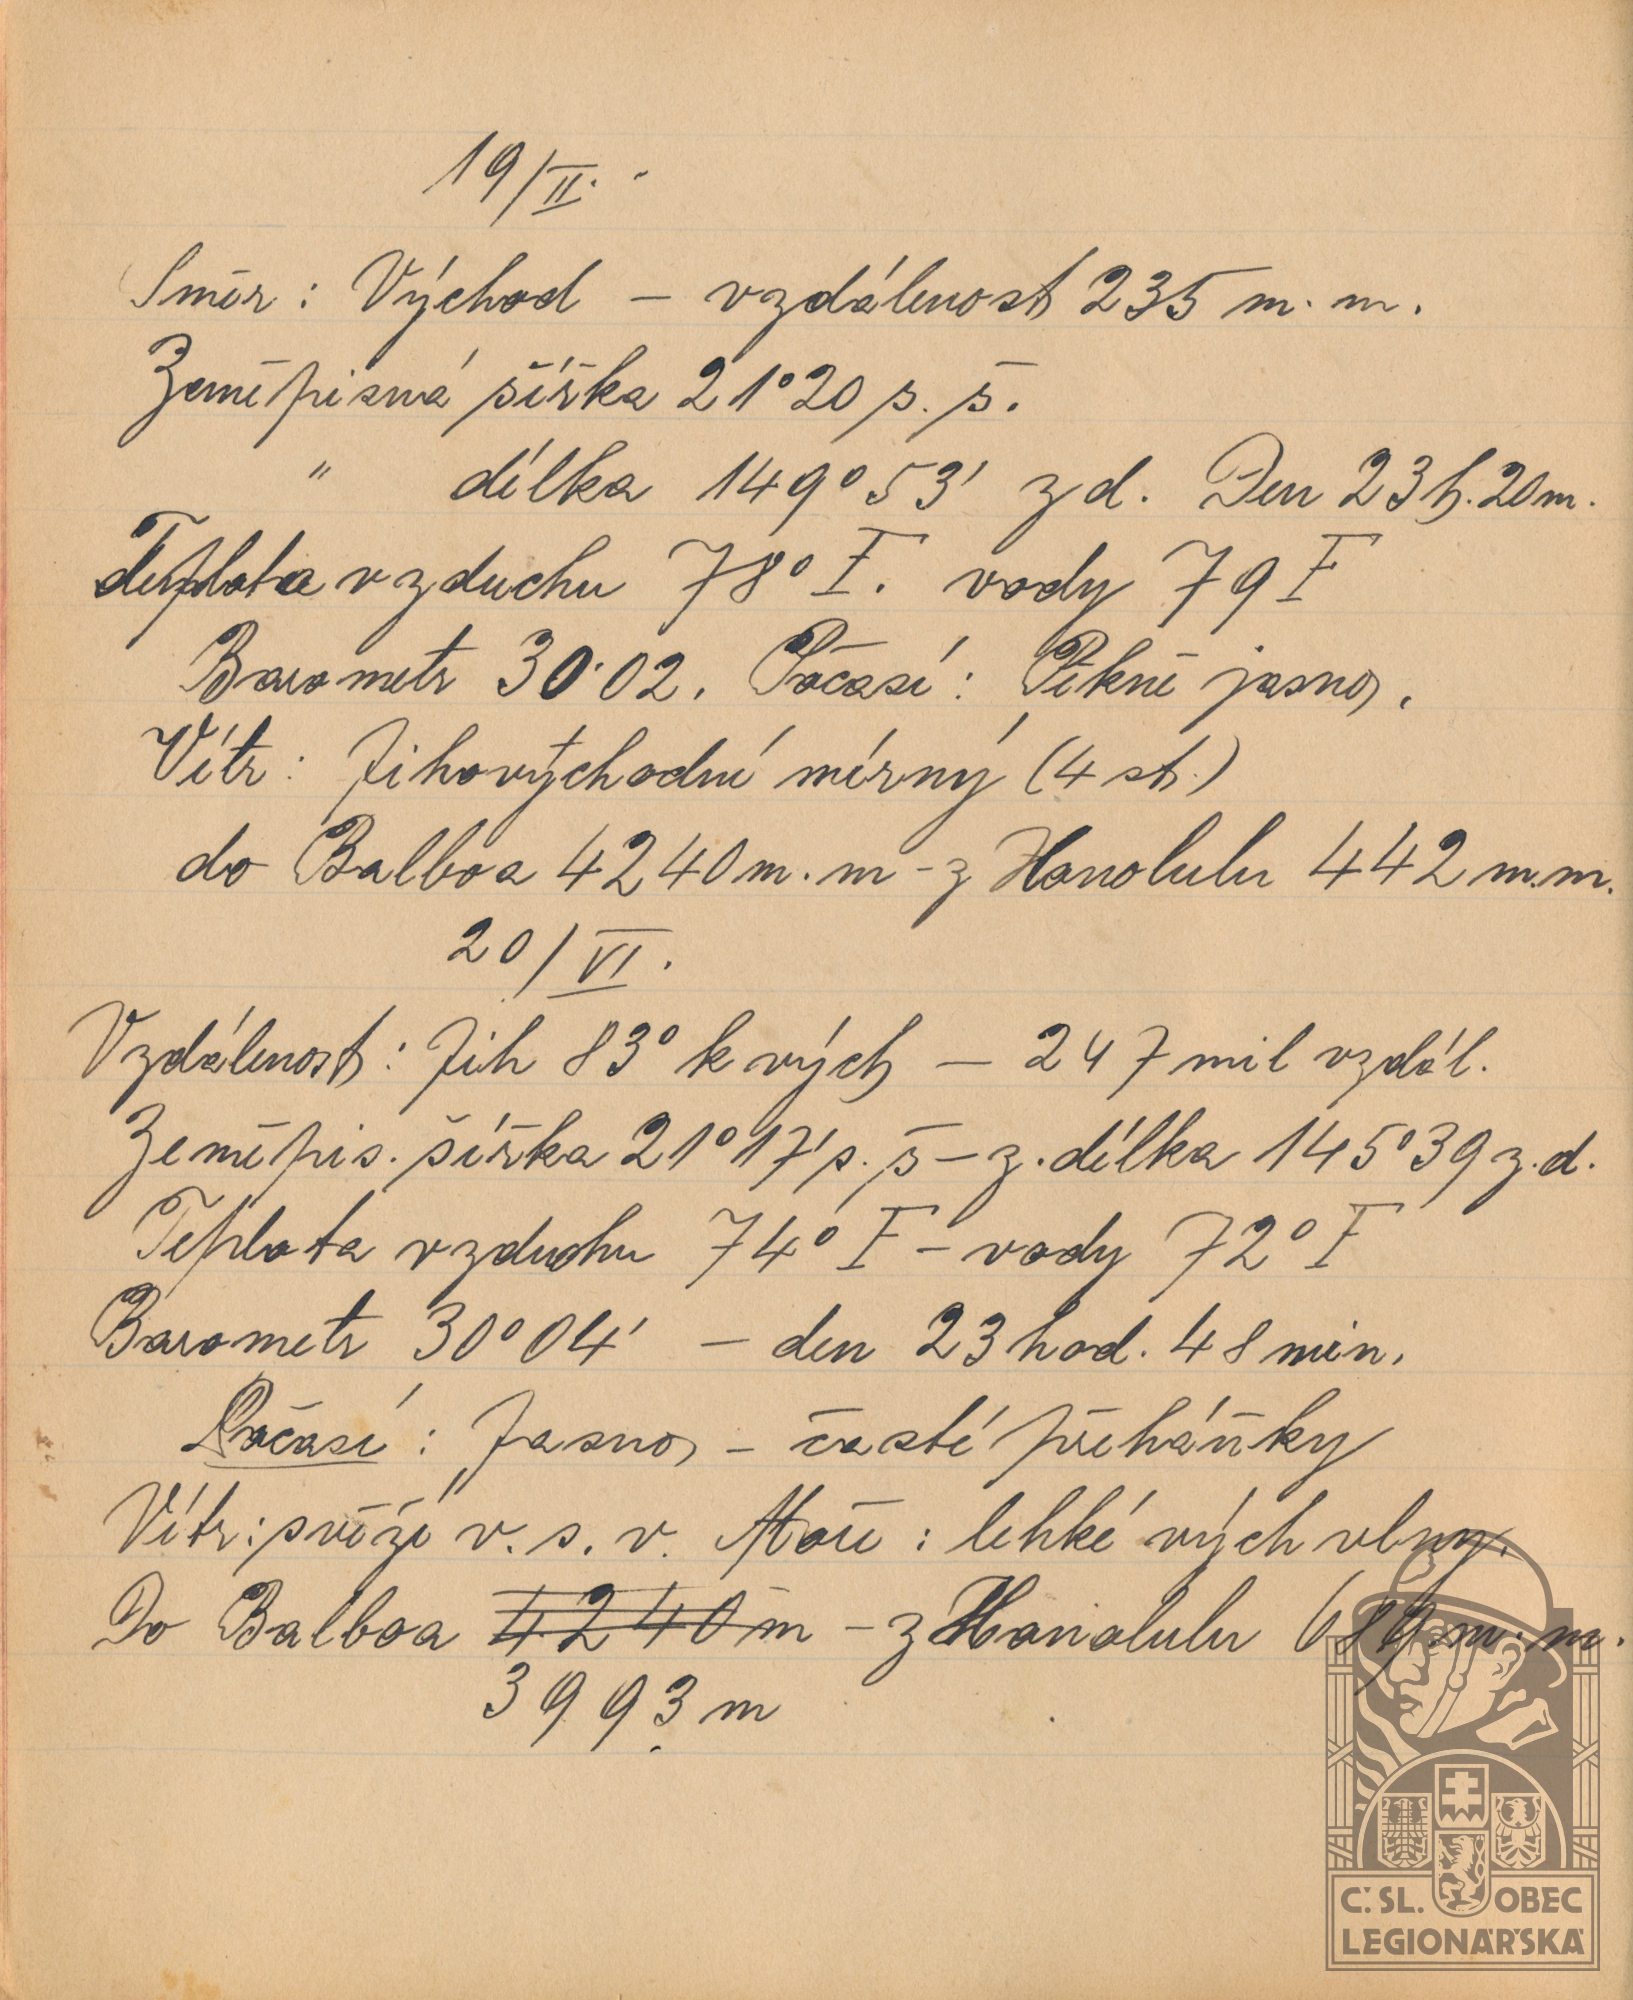 19/II.
Směr: Východ – vzdálenost 235 m. m.
Zeměpisná šířka 21°20 s. š.
" délka 149°53' z d. Den 23 h. 20 m.
Teplota vzduchu 78° F. vody 79 F
Barometr 30·02. Počasí: Pěkně jasno.
Vítr: Jihovýchodní mírný (4 st.)
do Balboa 4240 m. m – z Honolulu 442 m. m.
20/VI.
Vzdálenost: Jih 83° k vých – 247 mil vzdál.
Zeměpis. šířka 21°17' s. š – z. délka 145°39 z. d.
Teplota vzduchu 74° F – vody 72° F
Barometr 30°04' – den 23 hod. 48 min.
Počasí: Jasno – časté přeháňky
Vítr: svěží v. s. v. Moře: lehké vých vlny.
Do Balboa 4240 m – z Honolulu 689 m. m.
3993 m
Č. SL. OBEC
LEGIONÁŘSKÁ